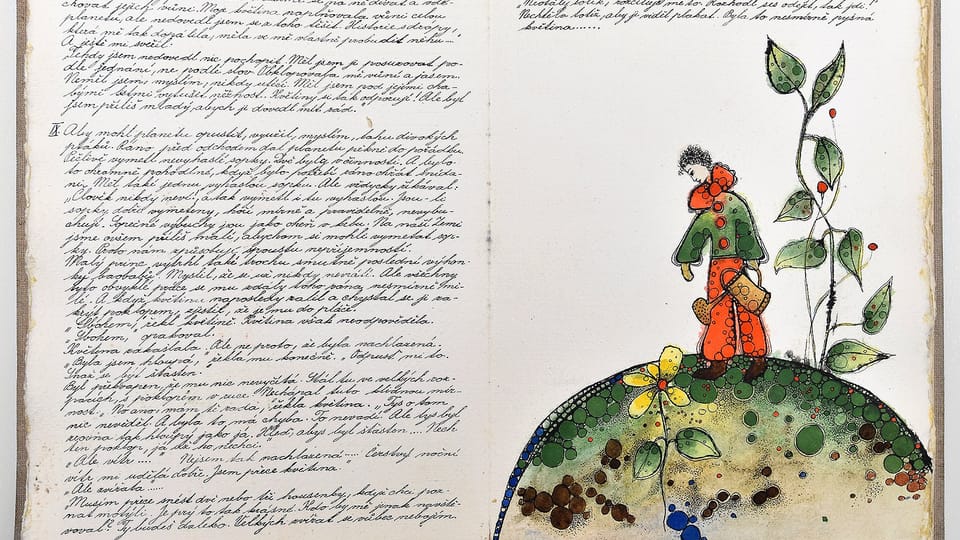 chovat jejich vůni. Moje květina naplňovala vůní celou
planetu, ale nedovedl jsem se z toho těšit. Historie s drápy,
která mě tak dozrála, měla ve mě vlastně probudit něhu....“
A ještě mi svěřil:
„Tehdy jsem nedovedl nic pochopit. Měl jsem ji posuzovat po-
dle jednání, ne podle slov. Obklopovala mě vůní a jasem.
Neměl jsem, myslím, nikdy utéci. Měl jsem pod jejími cha-
bými lstmi vytušit něžnost. Květiny si tak odporují! Ale byl
jsem příliš mladý, abych ji dovedl mít rád.“
IX Aby mohl planetu opustit, využil, myslím, tahu divokých
ptáků. Ráno před odchodem dal planetu pěkně do pořádku.
Pečlivě vymetl nevyhaslé sopky. Dvě byly v činnosti. A bylo
to ohromně pohodlné, když bylo potřebí ráno ohřát snída-
ni. Měl také jednu vyhaslou sopku. Ale vždycky říkával:
„Člověk nikdy neví“, a tak vymetl i tu vyhaslou. Jsou-li
sopky dobře vymeteny, hoří mírně a pravidelně, nevybu-
chují. Sopečné výbuchy jsou jako oheň v krbu. Na naší Zemi
jsme ovšem příliš malí, abychom si mohli vymetat sop-
ky. Proto nám způsobují spoustu nepříjemností.
Malý princ vytrhl také trochu smutně poslední výhon-
ky baobabů. Myslil, že se už nikdy nevrátí. Ale všechny
tyto obvyklé práce se mu zdály toho rána nesmírně mi-
lé. A když květinu naposledy zalil a chystal se ji za-
krýt poklopem, zjistil, že je mu do pláče.
„Sbohem,“ řekl květině. Květina však neodpověděla.
„Sbohem,“ opakoval.
Květina zakašlala. Ale ne proto, že byla nachlazená.
„Byla jsem hloupá,“ řekla mu konečně. „Odpusť mi to.
Snaž se být šťasten.“
Byl překvapen, že mu nic nevyčítá. Stál tu ve velkých roz-
pacích, s poklopem v ruce. Nechápal tuto klidnou něž-
nost. „No ano, mám tě ráda,“ řekla květina. „Tys o tom
nic nevěděl. A byla to má chyba. To nevadí. Ale tys byl
zrovna tak hloupý jako já. Hleď, abys byl šťasten.... Nech
ten poklop, já už ho nechci.“
„Ale vítr....“ „Nejsem tak nachlazená..... Čerstvý noční
vítr mi udělá dobře. Jsem přece květina.“
„Ale zvířata.....“
„Musím přece snést dvě nebo tři housenky, když chci poz-
nat motýly. Je prý to tak krásné. Kdo by mě jinak navště-
voval? Ty budeš daleko. Velkých zvířat se vůbec nebojím.
„Neotálej tolik, rozčiluje mě to. Rozhodl ses odejít, tak jdi!“
Nechtěla totiž, aby ji viděl plakat. Byla to nesmírně pyšná
květina......